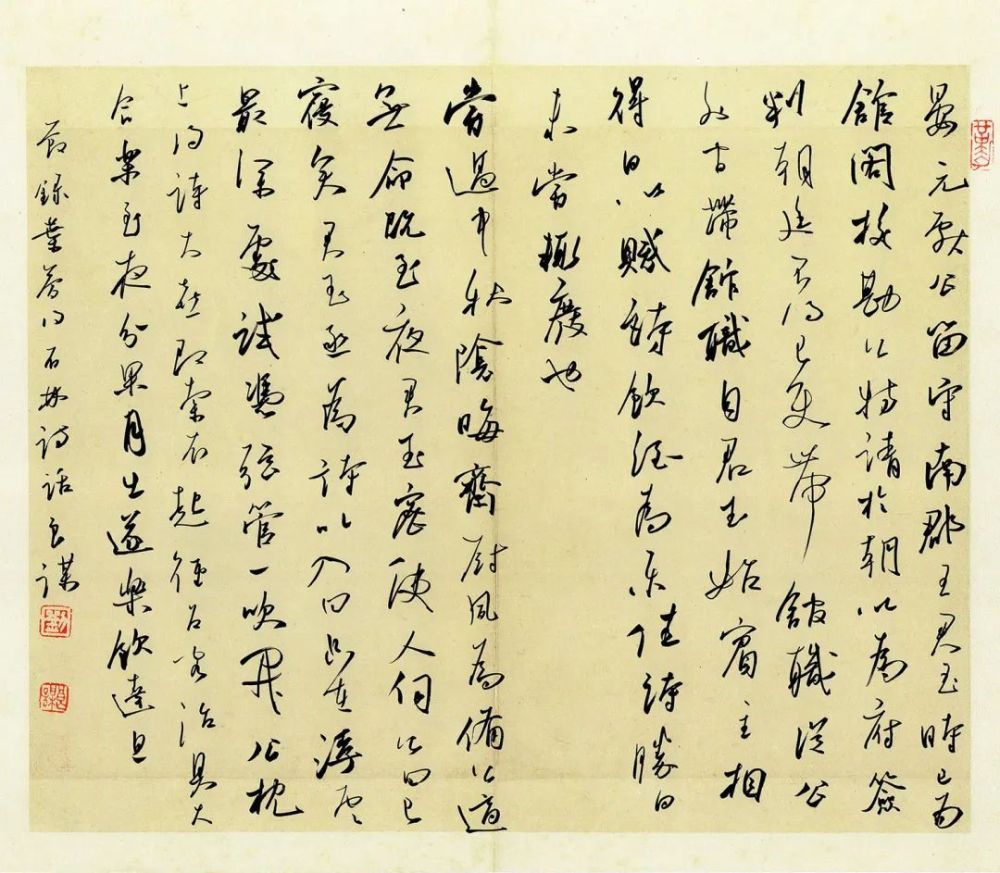 晏元獻公留守南郡王君玉時已為
館閣校勘公特請於朝以為府簽
判朝廷不得已使帶館職從公
外官帶館職自君玉始賓主相
得日以賦詩飲酒為樂佳詩勝日
未嘗輒廢也
嘗遇中秋陰晦齋廚夙為備公適
無命既至夜君玉密使人伺公曰已
寢矣君玉亟為詩以入曰只在浮雲
最深處試憑弦管一吹開公枕
上得詩大喜即索衣起徑召客治具大
合樂至夜分果月出遂樂飲達旦
節錄葉夢得石林詩話 良謀